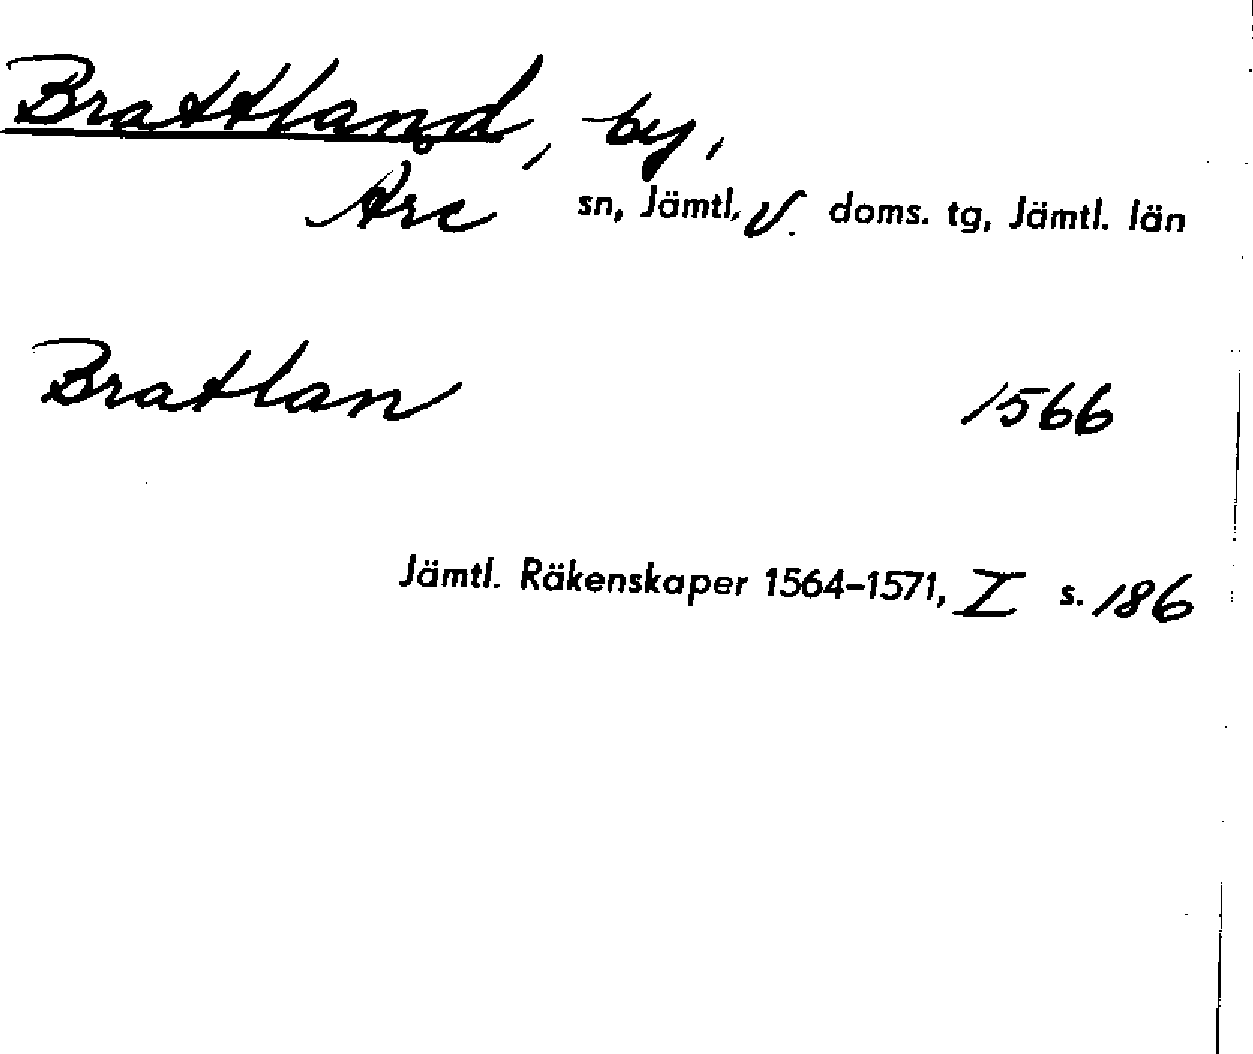 Brattland, by,
Åre sn, Jämtl. V. doms. tg, Jämtl. län
Bratlan 1566
Jämtl. Räkenskaper 1564-1571, I s. 186